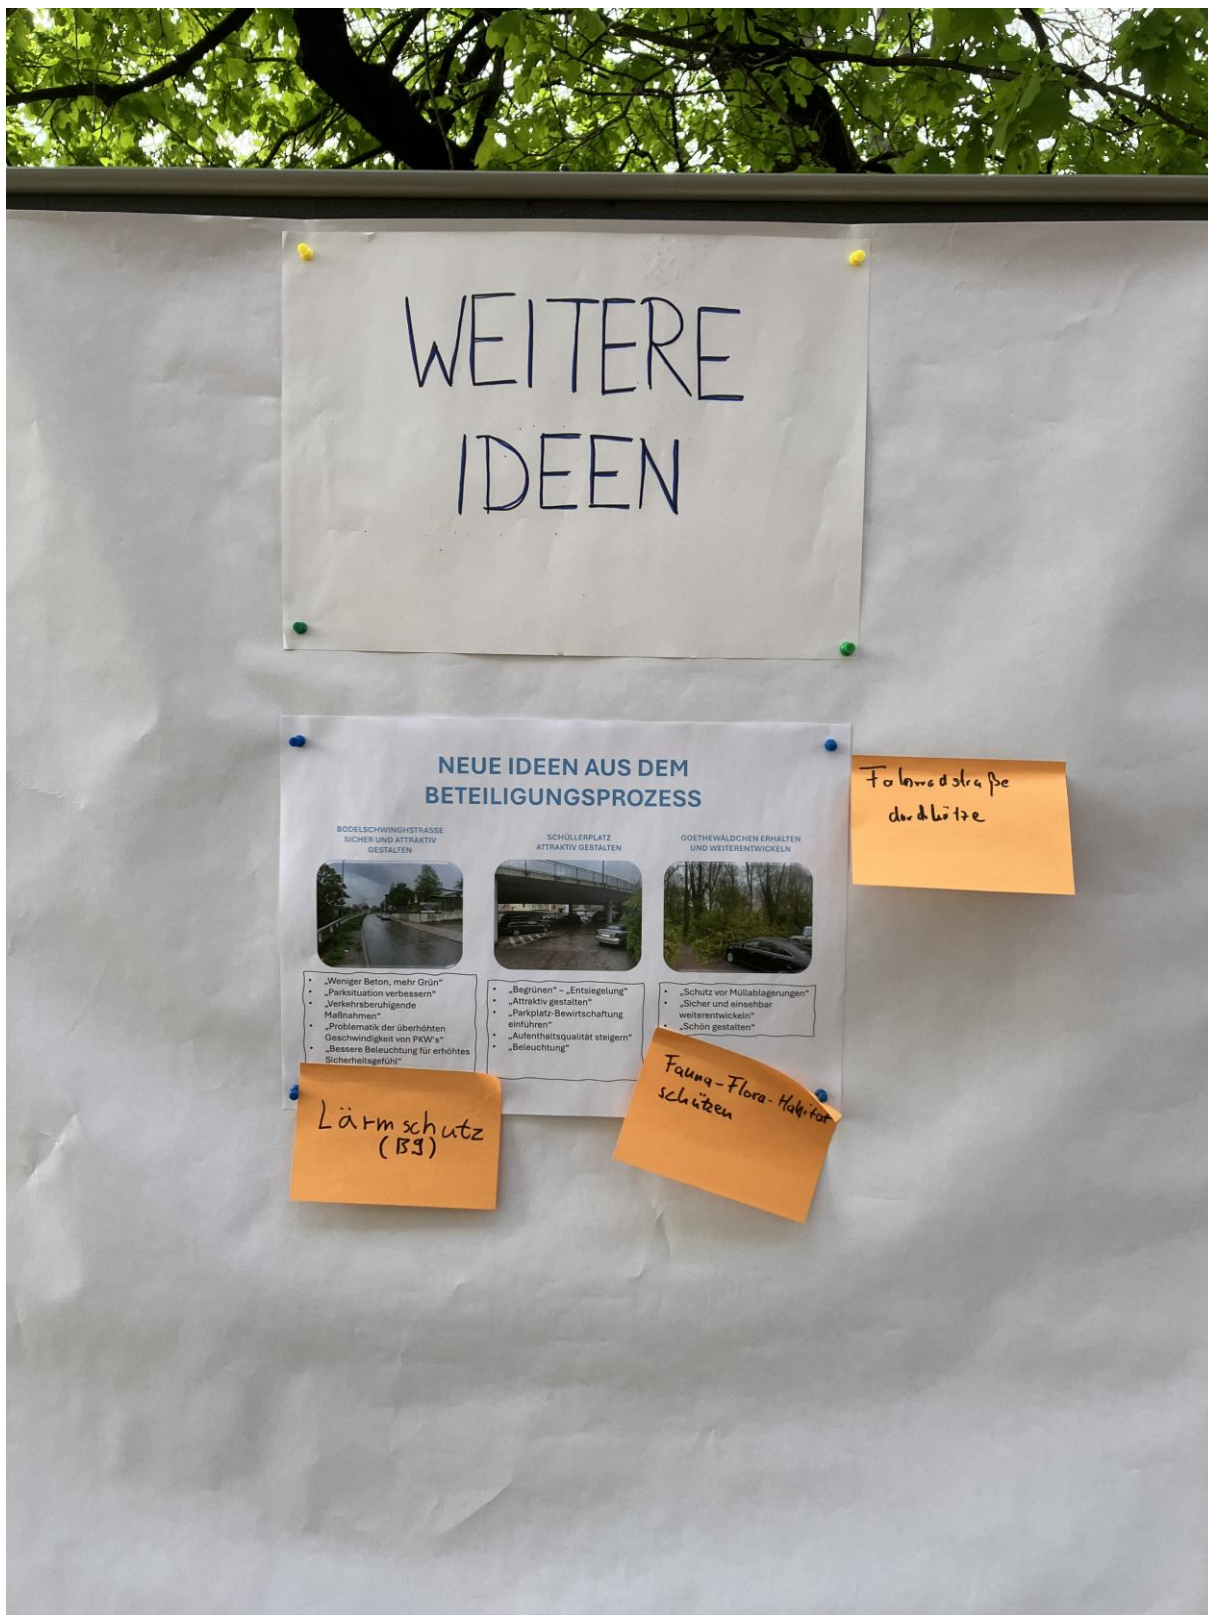 WEITERE
IDEEN
NEUE IDEEN AUS DEM
BETEILIGUNGSPROZESS
BODELSCHWINGHSTRASSE
SICHER UND ATTRAKTIV
GESTALTEN
• „Weniger Beton, mehr Grün“
• „Parksituation verbessern“
• „Verkehrsberuhigende
Maßnahmen“
• „Problematik der überhöhten
Geschwindigkeit von PKW's“
• „Bessere Beleuchtung für erhöhtes
Sicherheitsgefühl“
SCHÜLLERPLATZ
ATTRAKTIV GESTALTEN
• „Begrünen“ – „Entsiegelung“
• „Attraktiv gestalten“
• „Parkplatz-Bewirtschaftung
einführen“
• „Aufenthaltsqualität steigern“
• „Beleuchtung“
GOETHEWÄLDCHEN ERHALTEN
UND WEITERENTWICKELN
• „Schutz vor Müllablagerungen“
• „Sicher und einsehbar
weiterentwickeln“
• „Schön gestalten“
Fahrradstraße
Lärmschutz
Fauna-Flora-Habitat
schützen